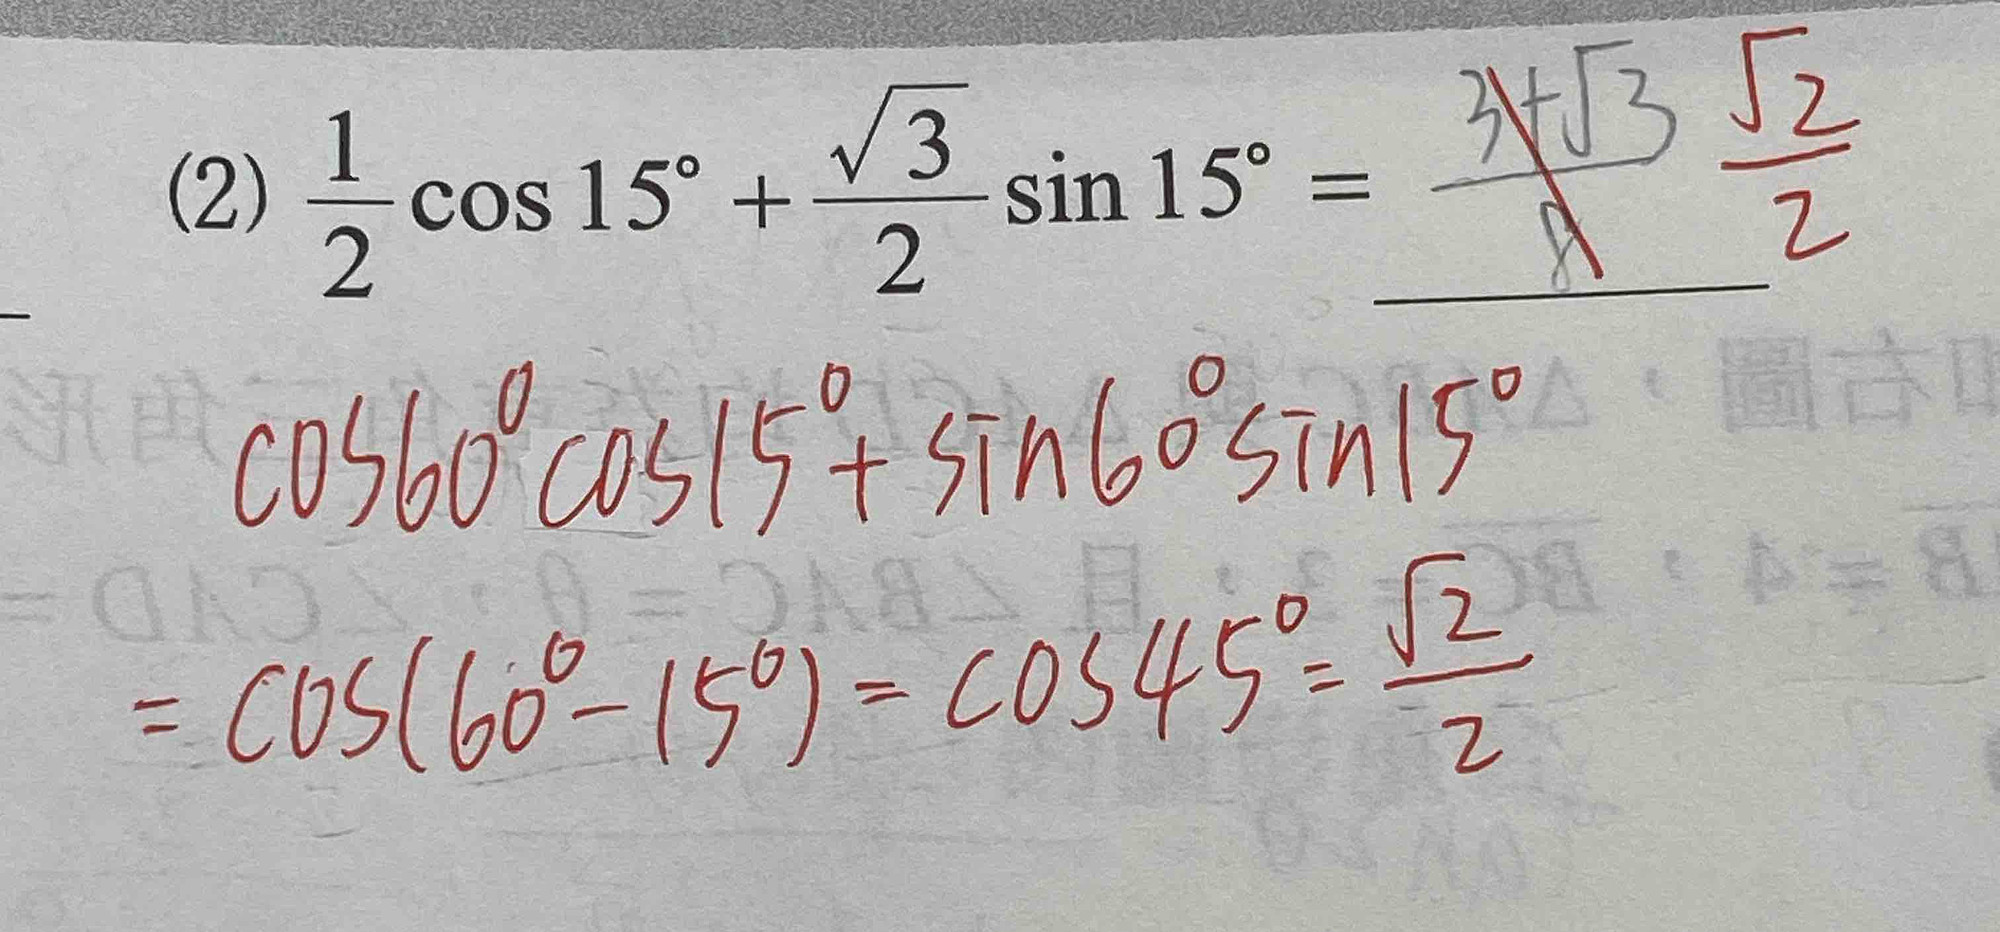 (2) \frac{1}{2} cos 15° + \frac{\sqrt{3}}{2} sin 15° = \frac{3+\sqrt{3}}{8} \frac{\sqrt{2}}{2}
cos60° cos15° + sin60° sin15°
= cos(60° - 15°) = cos45° = \frac{\sqrt{2}}{2}